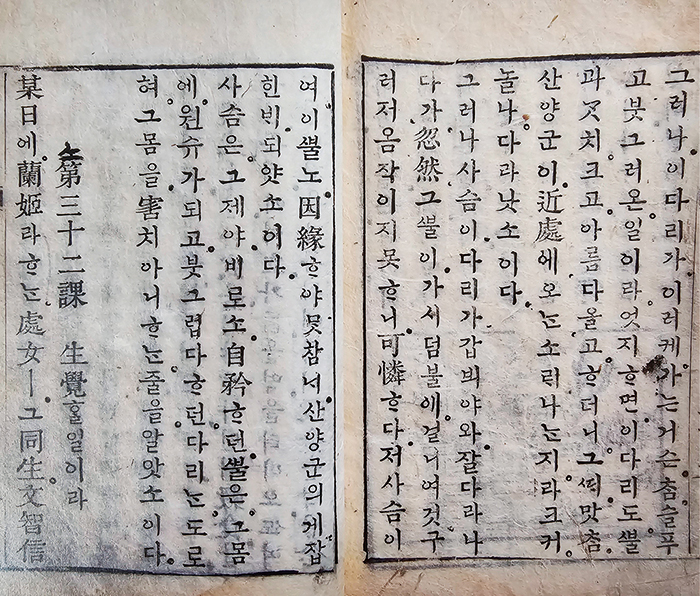 그러나이다리가이러케가ᄂᆞᆫ거슨。ᄎᆞᆷ슬푸
고붓그러온일이라엇지ᄒᆞ면이다리도ᄲᅮᆯ
과ᄀᆞᆺ치크고。아름다올고ᄒᆞ더니。그ᄯᅢ맛ᄎᆞᆷ
산양군이近處에오ᄂᆞᆫ소ᄅᆡ나ᄂᆞᆫ지라크게
놀나。다라낫소이다。
그러나사슴이다리가갑븨야와잘다라나
다가。忽然그ᄲᅮᆯ이가시덤불에걸니여것구
러저옴작이지못ᄒᆞ니。可憐ᄒᆞ다。저사슴이
여이ᄲᅮᆯ노因緣ᄒᆞ야못참ᄂᆡ산양군의게잡
힌비되얏소이다。
사슴은。그제야비로소自矜ᄒᆞ던ᄲᅮᆯ은。그몸
에。원슈가되고붓그럽다ᄒᆞ던다리ᄂᆞᆫ도로
혀그몸을害치아니ᄒᆞᄂᆞᆫ줄을알앗소이다。
第三十二課 生覺ᄒᆞᆯ일이라
某日에。蘭姬라ᄒᆞᄂᆞᆫ處女ㅣ그同生。文智信